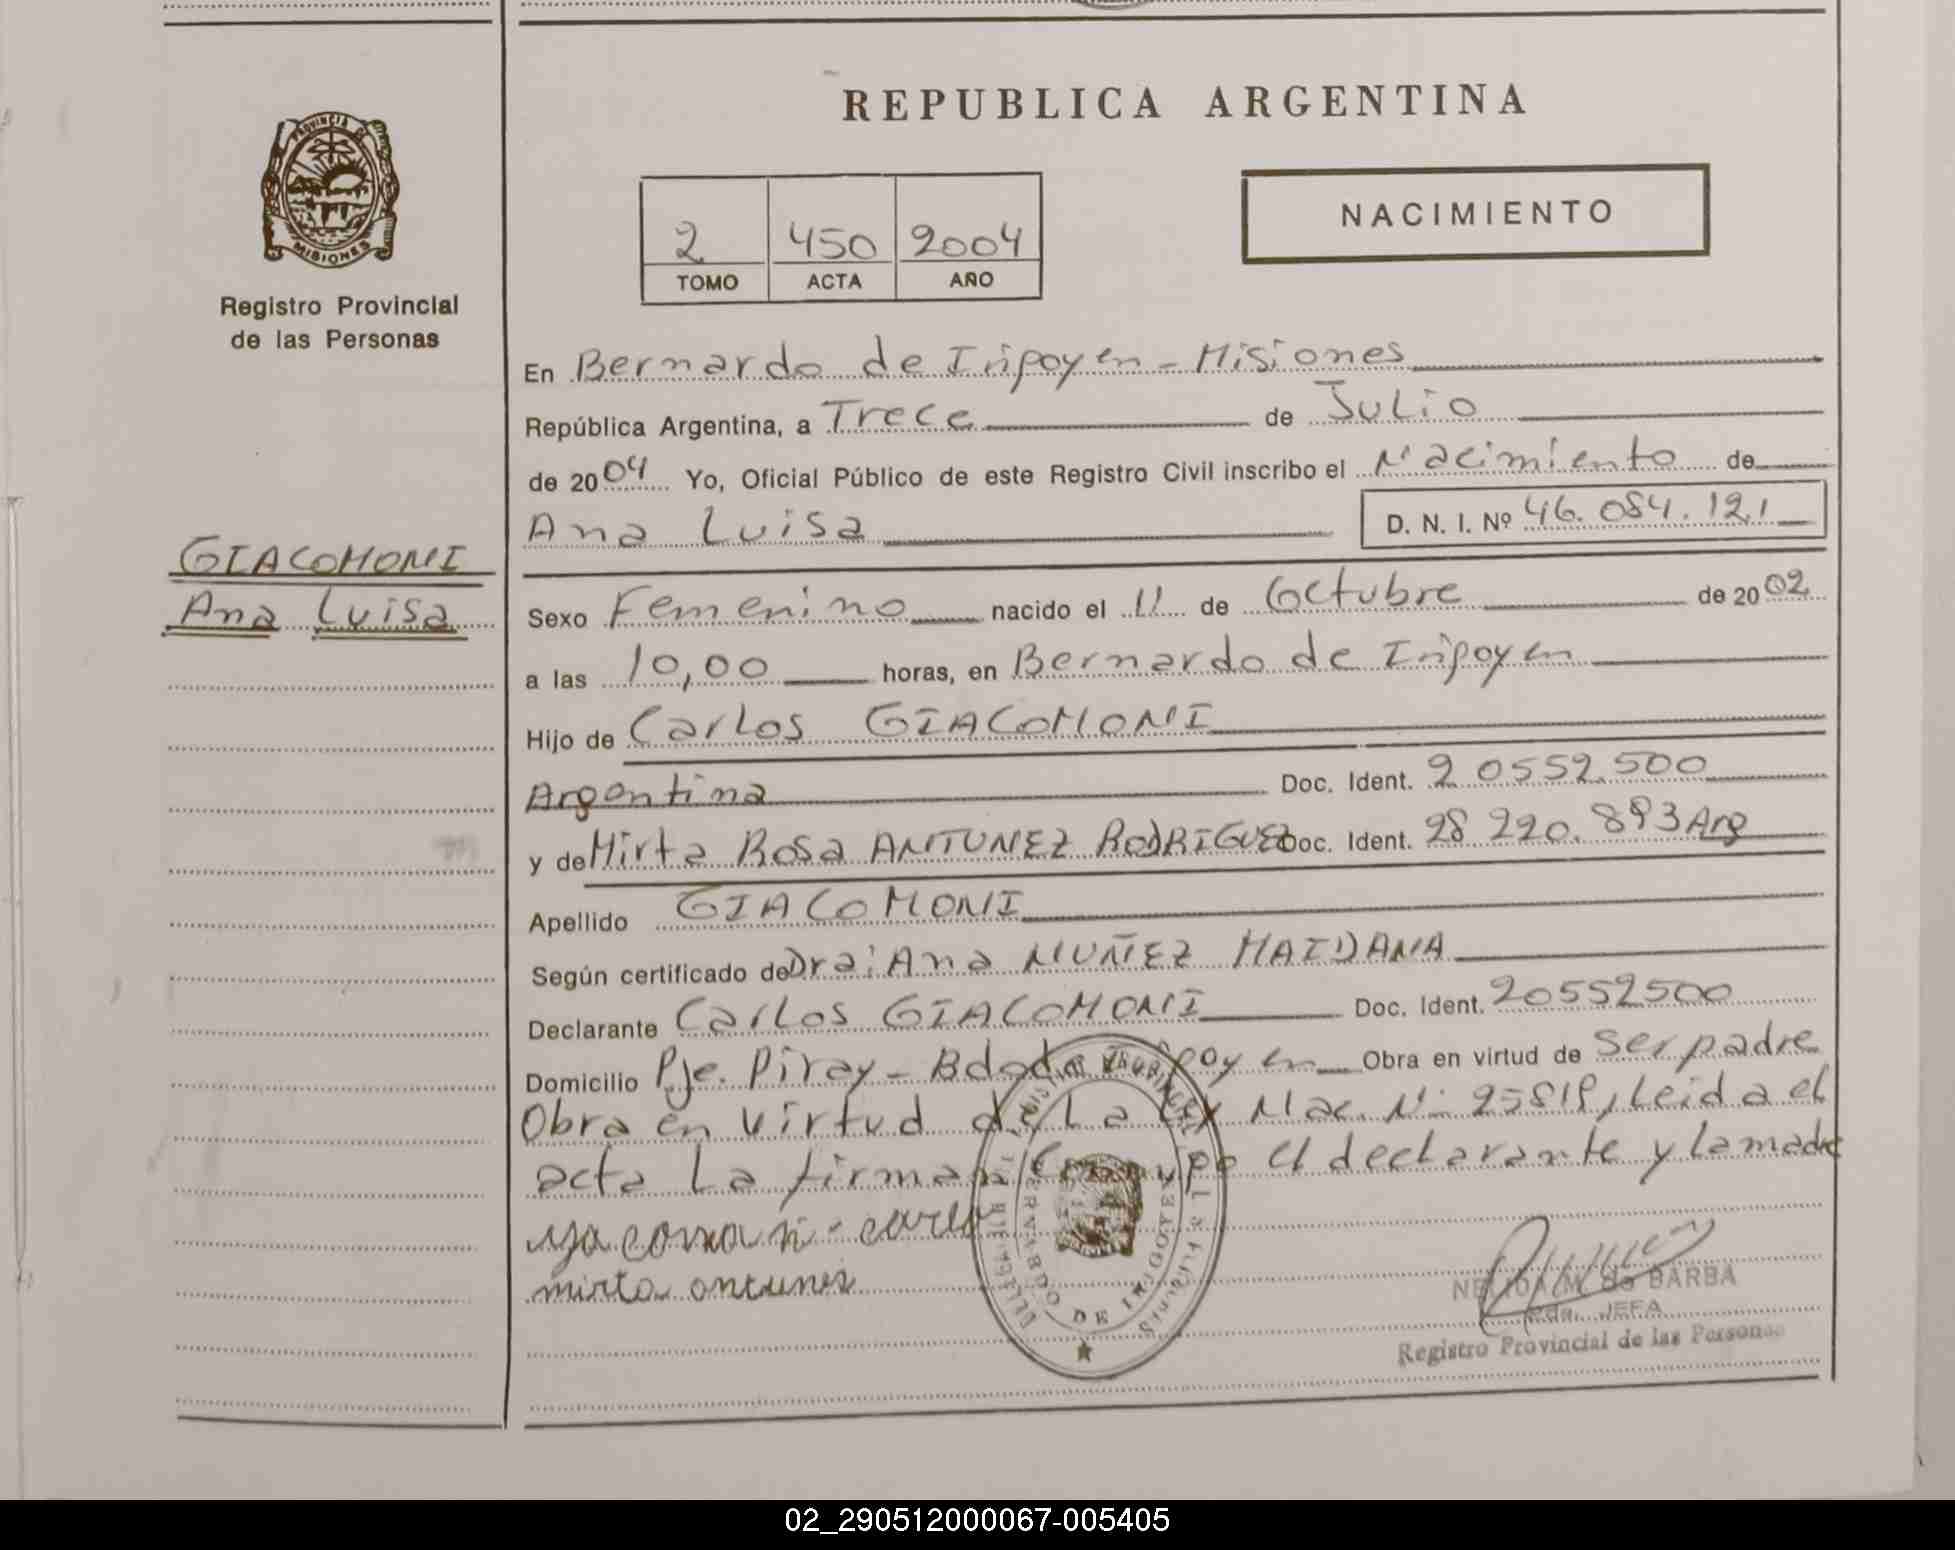 PROVINCIA DE
MISIONES
Registro Provincial
de las Personas
GIACOMONI
Ana Luisa
REPUBLICA ARGENTINA
2 450 2004
TOMO ACTA AÑO
NACIMIENTO
En Bernardo de Irigoyen - Misiones
República Argentina, a Trece de Julio
de 2004 Yo, Oficial Público de este Registro Civil inscribo el Nacimiento de
Ana Luisa D. N. I. Nº 46.084.121
Sexo Femenino nacido el 11 de Octubre de 2002
a las 10,00 horas, en Bernardo de Irigoyen
Hijo de Carlos GIACOMONI
Argentina Doc. Ident. 20552.500
y de Mirta Rosa ANTUNEZ RODRIGUEZ Doc. Ident. 28 220.893 Arg
Apellido GIACOMONI
Según certificado de Dra: Ana NUÑEZ MAIDANA
Declarante Carlos GIACOMONI Doc. Ident. 20552500
Domicilio Pje. Piray - Bdo de Irigoyen Obra en virtud de ser padre
Obra en virtud de La Ley Nac. Nº 25819, Leida el
acta La firman Conmigo el declarante y la madre
carlo
mirta antunes
BERNARDO DE IRIGOYEN
NELIDA M. de BARBA
JEFA
Registro Provincial de las Personas
02_290512000067-005405